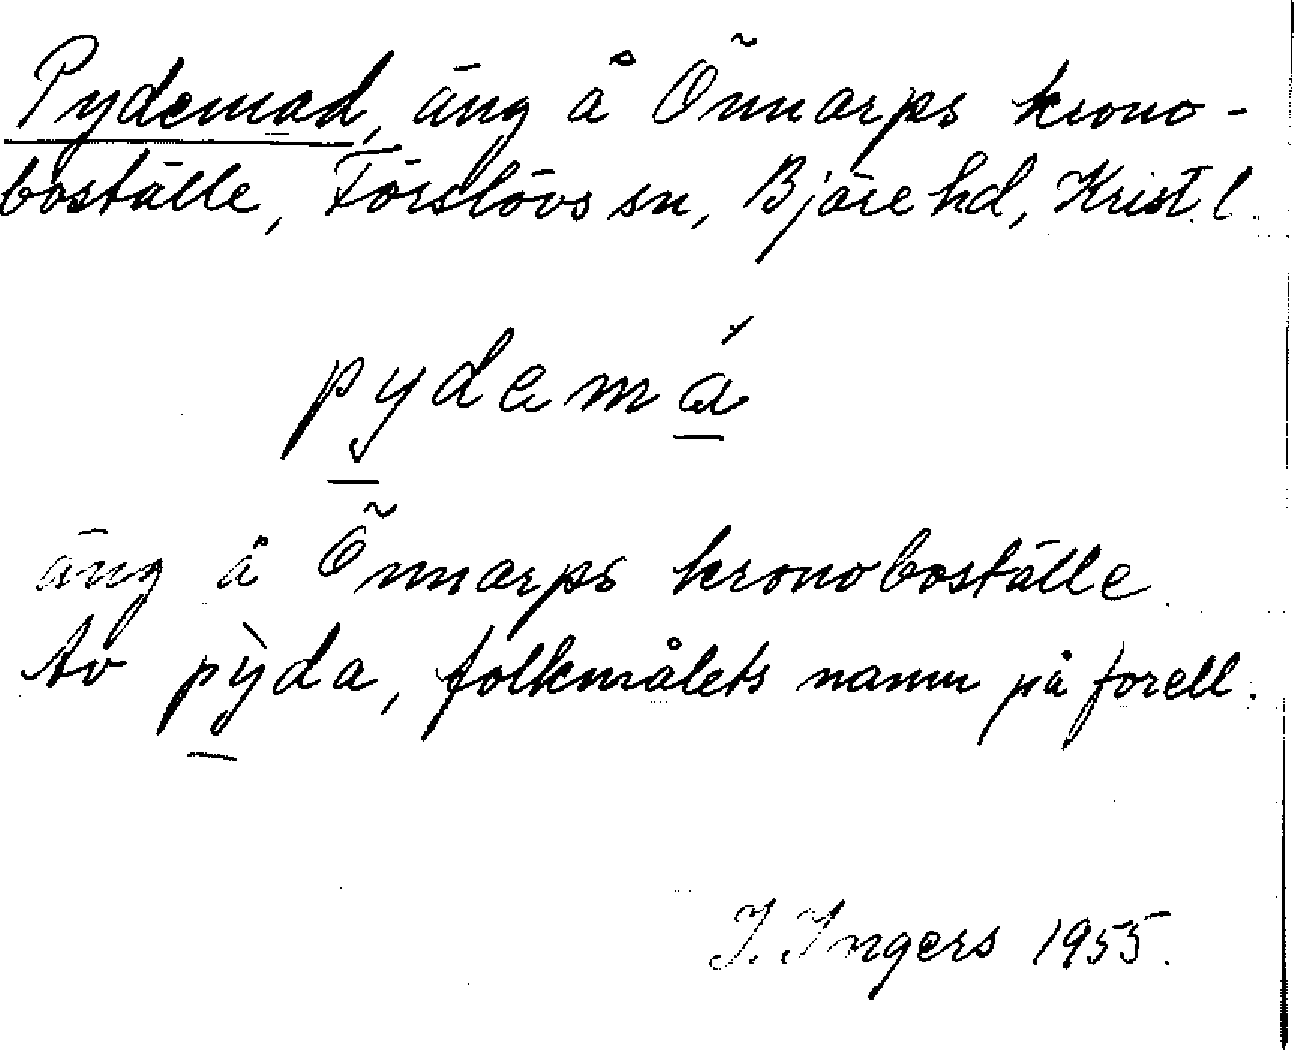 Pydemad, äng å Önnarps krono-
boställe, Förslövs sn, Bjäre hd, Krist. l.
pydemá
äng å Önnarps kronoboställe.
Av pỳda, folkmålets namn på forell.
I. Ingers 1955.